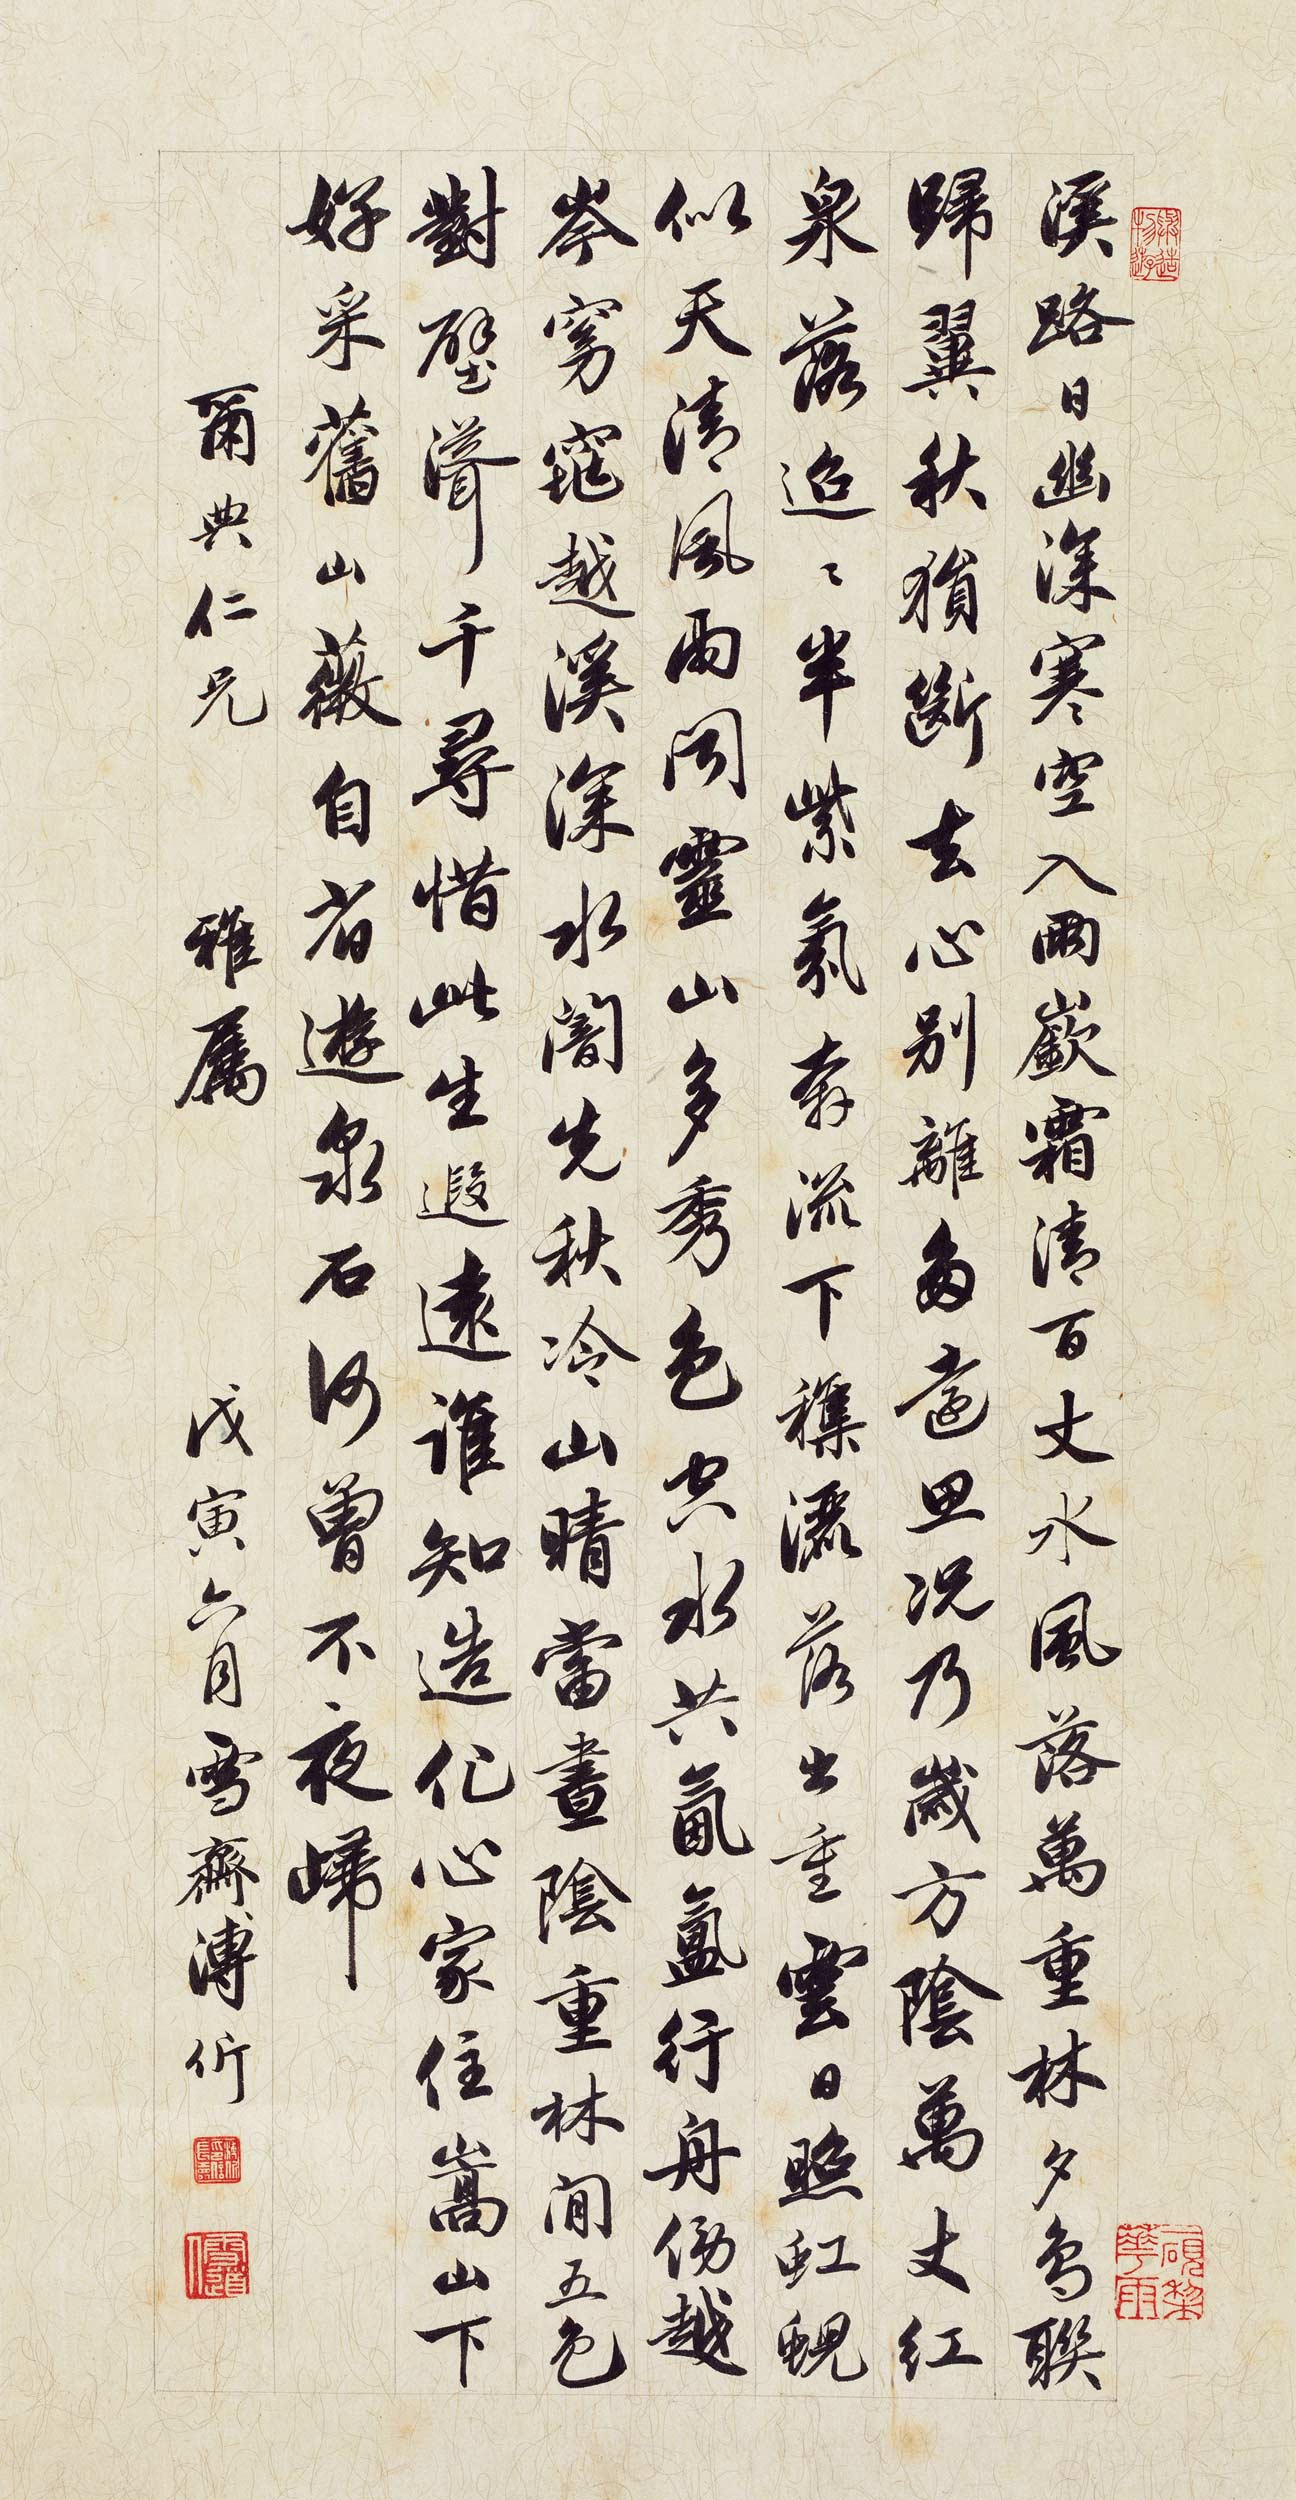 與造物游
溪路日幽深寒空入兩嶔霜清百丈水風落萬重林夕鳥聯
歸翼秋猿斷去心別離多遠思況乃歲方陰萬丈紅
泉落迢〻半紫氛奔流下雜灑落出重雲日照虹蜺
似天清風雨聞靈山多秀色空水共氤氳行舟傍越
岑窈窕越溪深水闇先秋冷山晴當晝陰重林間五色
對壁聳千尋惜此生遐遠誰知造化心家住嵩山下
好采舊山薇自省遊泉石何曾不夜歸
爾典仁兄 雅屬 戊寅六月雪齋溥伒